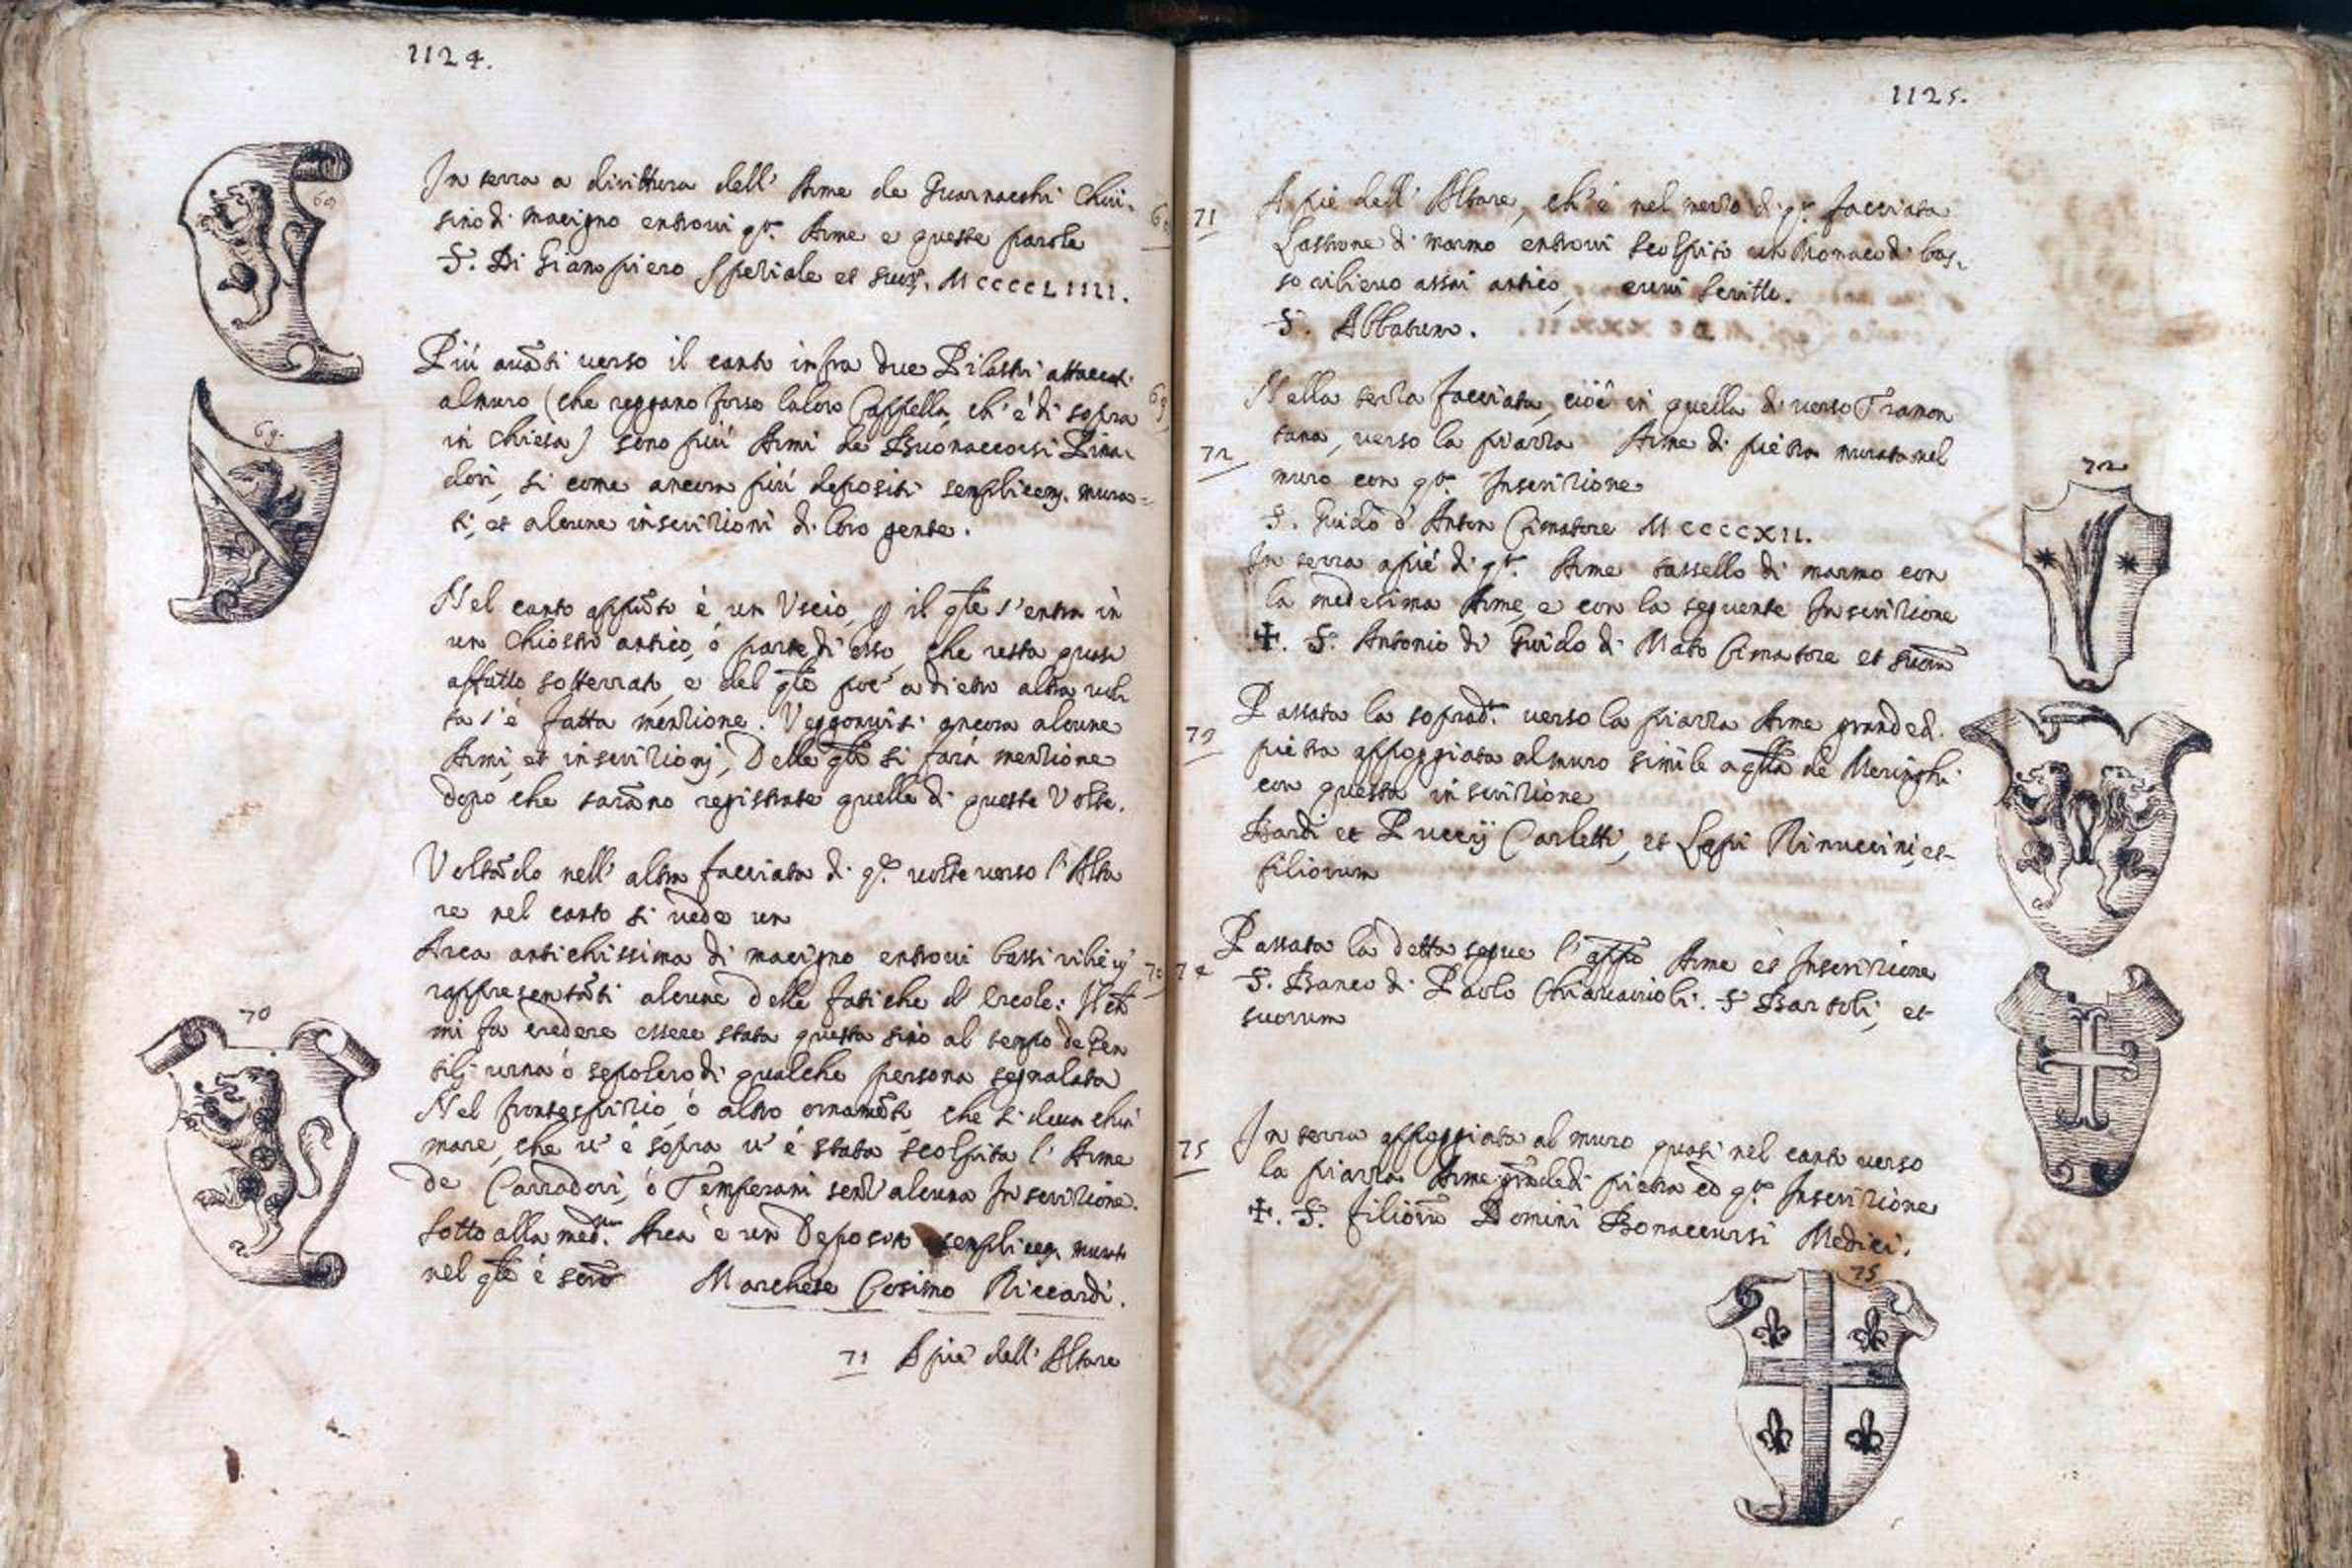 1124.
In terra a dirittura dell' Arme de Guarnacchi Chiu-
sino di macigno entrovi qta. Arme e queste parole
S. Di Giampiero Speziale et suor. MCCCCLIIII.
69
Più avāti verso il canto infra due Pilastri attaccati
al muro (che reggano forse la loro Cappella, ch'è di sopra
in Chiesa) sono più Armi de Buonaccorsi Pina-
dori, si come ancora più depositi semplicem. mura-
ti, et alcune inscrizioni di loro gente.
69.
Nel canto appūto è un Uscio, p il qle s'entra in
un Chiostro antico, ò parte di esso, che resta quasi
affatto sotterrato, e del qle poc' a dietro altra vol
ta s'è fatta menzione. Veggonvisi ancora alcune
Armi, et inscrizionj, Delle qle si farà menzione
dopo che sarāno registrate quelle di queste Volte.
Voltādo nell' altra facciata di qte. volte verso l'Alta
re nel canto si vede un
Arca antichissima di macigno entrovi bassi rilievj
rappresentāti alcune delle fatiche d'Ercole:
mi fa credere essere stata questa sino al tempo de Gen
tilj urna ò sepolcro di qualche persona segnalata
Nel frontespizio, ò altro ornamēto, che si deva chia
mare, che v'è sopra v'è stata scolpita l'Arme
de Carradori, ò Temperani senz' alcuna Inscrizione.
Sotto alla med.ma Arca è un Deposito semplicem. murato
nel qle è scrō Marchese Cosimo Riccardi.
70
71 A piè dell' Altare
1125.
71 A piè dell' Altare, ch'è nel mezzo di qta. facciata
Lastrone di marmo entrovi scolpito un Monaco di bas-
so rilievo assai antico, evvi scritto.
S. Abbatum.
Nella terza facciata, cioè in quella di verso Tramon
72 tana, verso la piazza Arme di pietra murata nel
muro con qta. Inscrizione
S. Guido d'Anton Cimatore MCCCCXII.
In terra a piè di qta. Arme tassello di marmo con
la medesima Arme, e con la seguente Inscrizione
✠. S. Antonio di Guido di Mato Cimatore et suorū
72
73 Passata la soprad.ta verso la piazza Arme grande d.
pietra appoggiata al muro simile a qlla de Meringhi
con questa inscrizione
Bardi et Puccij Carletti, et Lapi Rinuccini, et
filiorum
74 Passata la detta segue l'appō Arme et Inscrizione
S. Banco di Paolo S Bartoli, et
suorum
75 In terra appoggiata al muro quasi nel canto verso
la piazza Arme grāde di pietra cō qta. Inscrizione
✠. S. filiorū Domini Bonaccursi Medici.
75